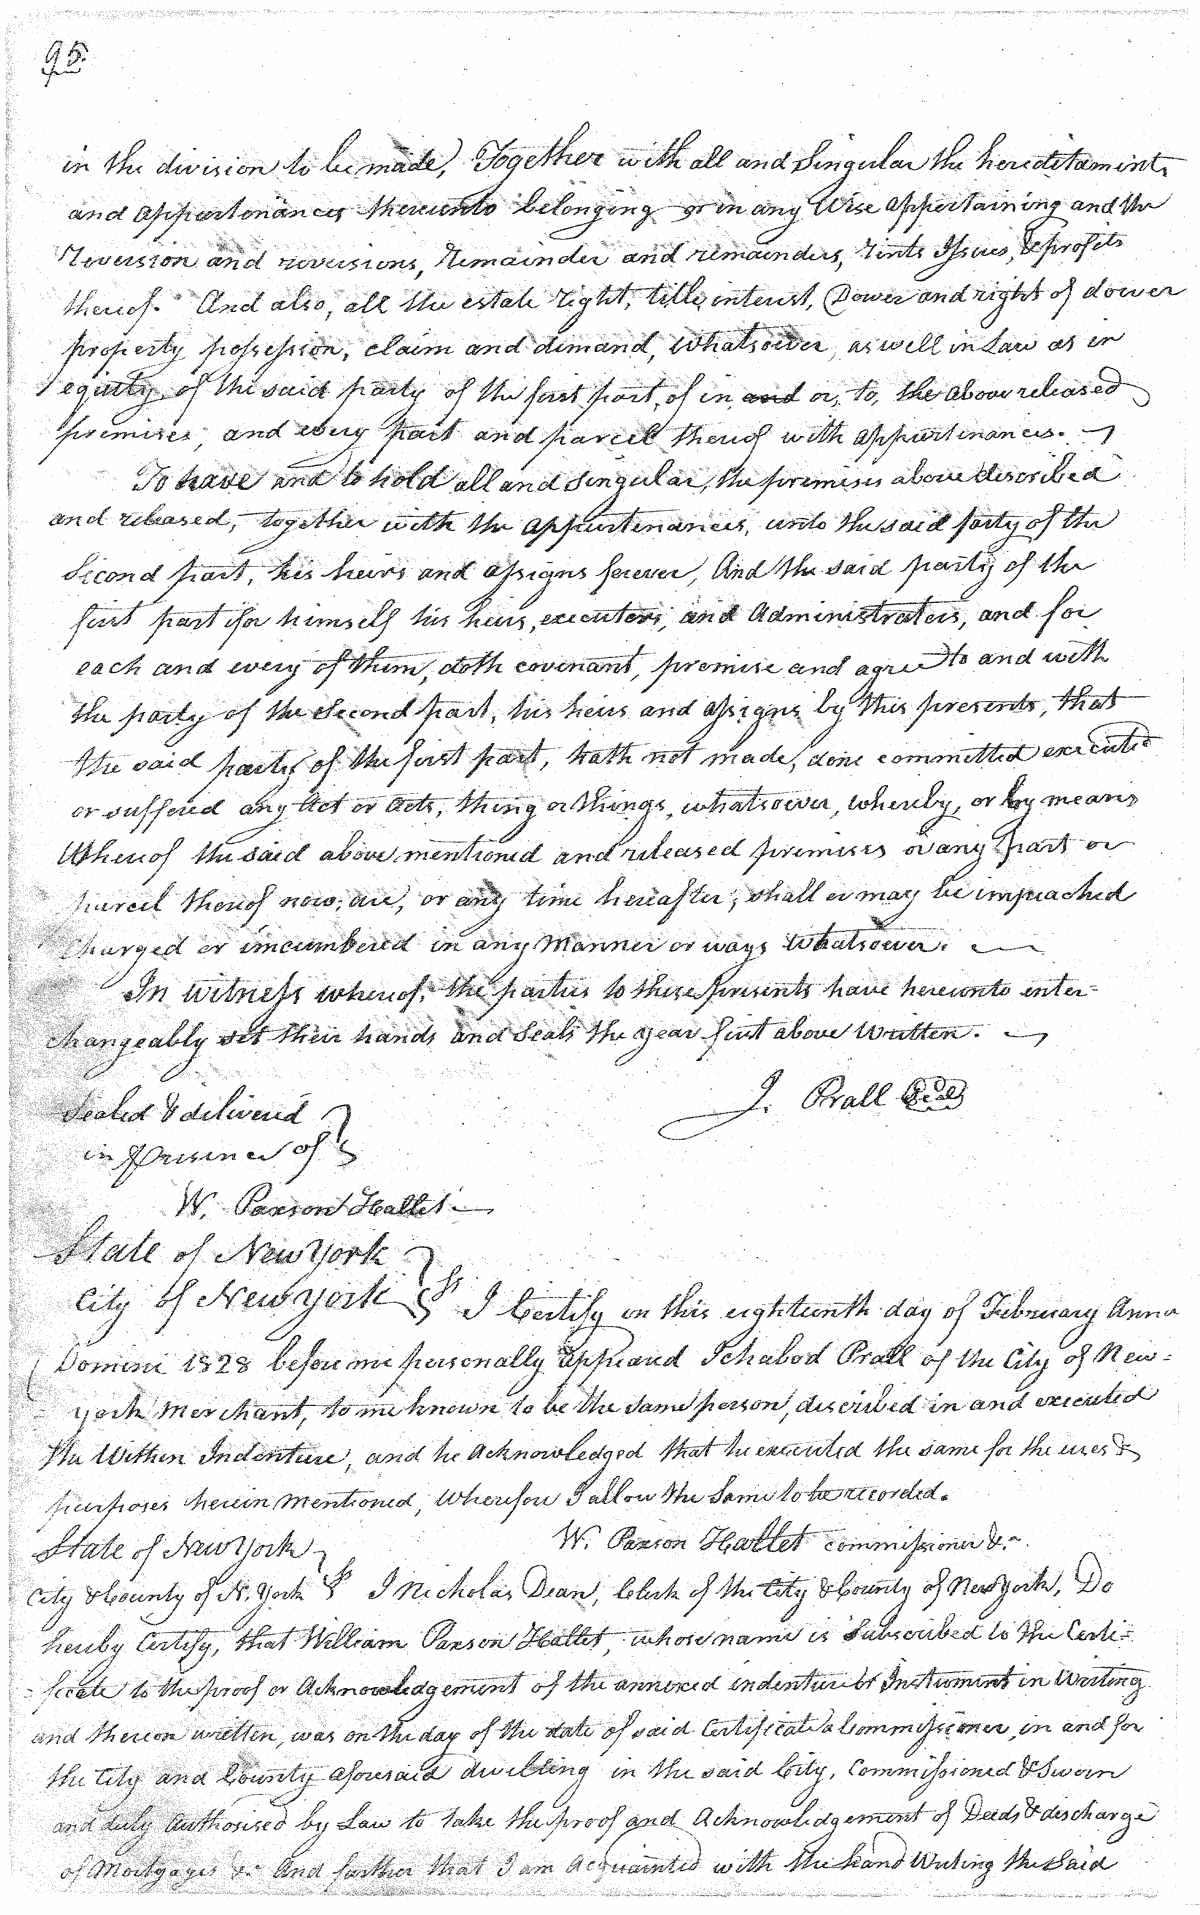 95
in the division to be made, Together with all and Singular the hereditaments
and appurtenances thereunto belonging or in any Wise appertaining and the
reversion and reversions, remainder and remainders, rents Issues, & profits
thereof. And also, all the estate right, title, interest, Dower and right of dower
property possession, claim and demand, Whatsoever, as well in Law as in
equity, of the said party of the first part, of in, and or, to, the above released
premises, and every part and parcel thereof with appurtenances.
To have and to hold all and Singular, the premises above described
and released, together with the appurtenances, unto the said party of the
Second part, his heirs and assigns forever, And the said party of the
first part for himself his heirs, executors, and Administrators, and for
each and every of them, doth covenant, promise and agree to and with
the party of the Second part, his heirs and assigns by this presents, that
the said party of the first part, hath not made, done committed executed
or suffered any Act or Acts, thing or things, whatsoever, whereby, or by means
Whereof the said above mentioned and released premises or any part or
parcel thereof now, are, or any time hereafter, shall or may be impeached
Charged or incumbered in any Manner or ways Whatsoever.
In Witness whereof, the parties to these presents have hereunto inter=
changeably set their hands and Seals the year first above Written.
Sealed & delivered
J. Prall Seal
in Presence of
W. Paxson Hallet
State of New York
City of New york Ss I Certify on this eighteenth day of February Anno
Domini 1828 before me personally appeared Ichabod Prall of the City of New=
york Merchant, to me known to be the same person, discribed in and executed
the Within Indenture, and he Acknowledged that he executed the same for the uses &
purposes herein mentioned, Wherefore I allow the Same to be recorded.
W. Paxson Hallet commissioner &c.
State of New York
City & County of N. York Ss I Nicholas Dean, Clerk of the City & County of New York, Do
hereby Certify, that William Paxson Hallet, whose name is Subscribed to the Certi=
=ficate to the proof or Acknowledgement of the annexed indenture or Instrument in Writing
and thereon written, was on the day of the date of said Certificate a Commissioner, in and for
the City and County aforesaid dwelling in the said City, Commissioned & Sworn
and duly Authorised by Law to take the proof and Acknowledgement of Deeds & discharge
of Mortgages &c And further that I am Acquainted with the hand Writing the Said